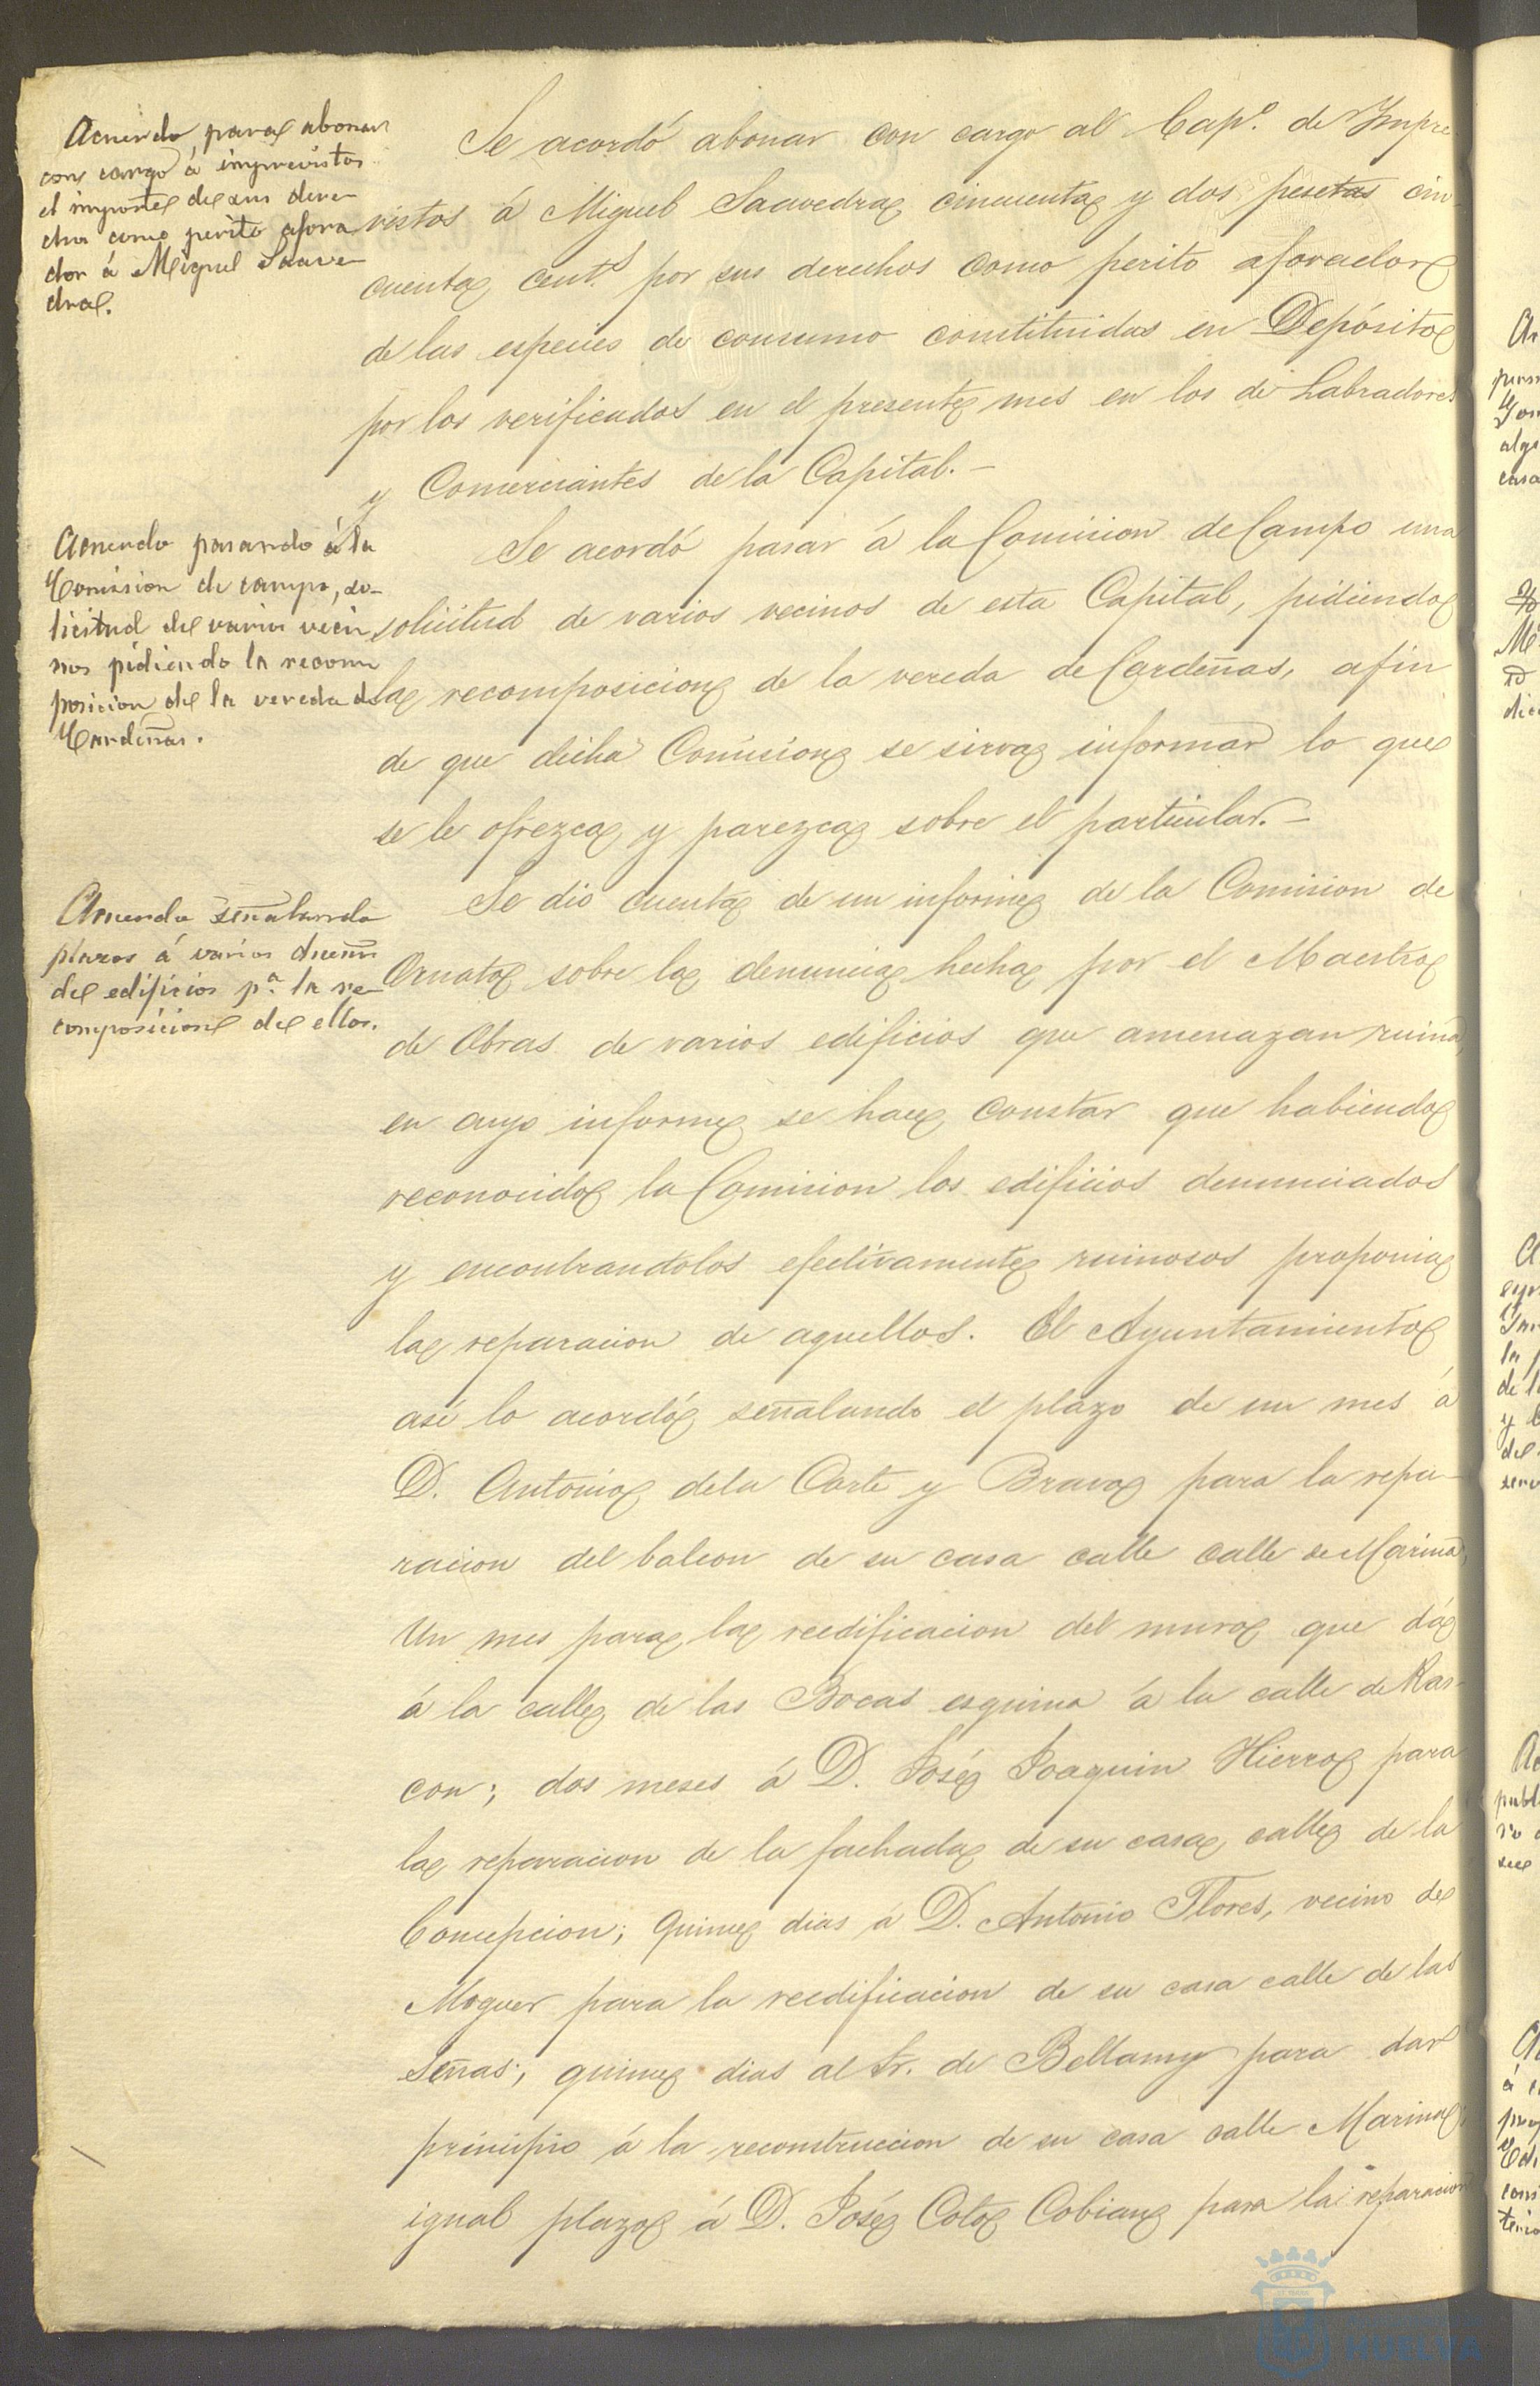 Acuerdo para abonar
con cargo á imprevistos
el importe de sus dere-
chos como perito afora
dor á Miguel Saave-
dra.
Se acordó abonar con cargo al Cap.º de Impre-
vistos á Miguel Saavedra cincuenta y dos pesetas cin-
cuenta cent.s por sus derechos como perito aforador
de las especies de consumo constituidas en Depósito
por los verificados en el presente mes en los de Labradores
y Comerciantes de la Capital.-
Acuerdo pasando á la
Comision de campo, so-
licitud de varios veci
nos pidiendo la recom
posicion de la vereda de
Cardeñas.
Se acordó pasar á la Comision de Campo una
solicitud de varios vecinos de esta Capital, pidiendo
la recomposicion de la vereda de Cardeñas, afin
de que dicha Comision se sirva informar lo que
se le ofrezca y parezca sobre el particular.-
Acuerdo señalando
plazos á varios dueños
de edificios p.ª la re-
composicion de ellos.
Se dio cuenta de un informe de la Comision de
Ornato sobre la denuncia hecha por el Maestro
de Obras de varios edificios que amenazan ruina,
en cuyo informe se hace constar que habiendo
reconocido la Comision los edificios denunciados
y encontrandolos efectivamente ruinosos proponia
la reparacion de aquellos. El Ayuntamiento
asi lo acordó señalando el plazo de un mes á
D. Antonio de la Corte y Bravo para la repa-
racion del balcon de su casa calle calle de Marina,
Un mes para la reedificacion del muro que dá
á la calle de las Bocas esquina á la calle de Ras-
con; dos meses á D. José Joaquin Hierro para
la reparacion de la fachada de su casa calle de la
Concepcion; Quince dias á D. Antonio Flores, vecino de
Moguer para la reedificacion de su casa calle de las
Señas; quince dias al Sr. de Bellamy para dar
principio á la reconstruccion de su casa calle Marina;
igual plazo á D. José Coto Cobian para la reparacion
HUELVA